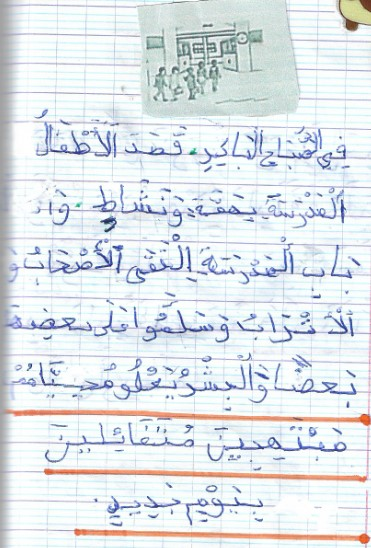 فِي الصَّبَاحِ الْبَاكِرِ. قَصَدَ الْأَطْفَالُ
الْمَدْرَسَةَ بِهِمَّةٍ وَنَشَاطٍ.
بَابِ الْمَدْرَسَةِ اِلْتَقَى الْأَصْحَابُ وَ
الْأَتْرَابُ وَسَلَّمُوا عَلَى بَعْضِهِمْ
بَعْضًا وَالْبِشْرُ يَعْلُو مُحَيَّاهُمْ
مُبْتَهِجِينَ مُتَفَائِلِينَ
بِيَوْمٍ جَدِيدٍ.